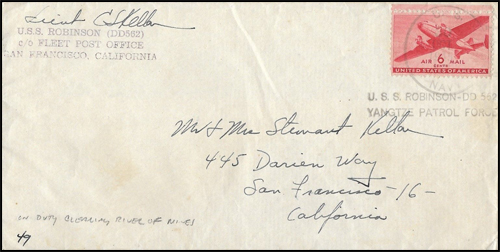 Lieut C S Kellar
U.S.S. ROBINSON (DD562)
c/o FLEET POST OFFICE
SAN FRANCISCO, CALIFORNIA
6
CENTS
AIR MAIL
UNITED STATES OF AMERICA
NAVY
U. S. S. ROBINSON-DD 562
YANGTZE PATROL FORCE
Mr & Mrs Stewart Kellar
445 Darien Way
San Francisco -16-
California
ON DUTY CLEARING RIVER OF MINES
49